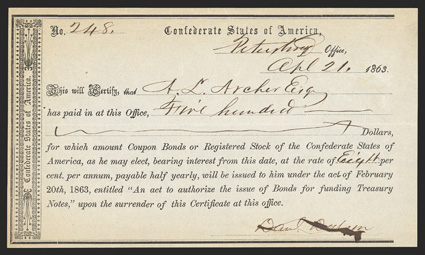 No. 248. Confederate States of America,
Petersburg Office,
Apl 21, 1863
This will Certify, that A. L. Archer Esq
has paid in at this Office, Five hundred
Dollars,
for which amount Coupon Bonds or Registered Stock of the Confederate States of
America, as he may elect, bearing interest from this date, at the rate of Eight per
cent, per annum, payable half yearly, will be issued to him under the act of February
20th, 1863, entitled "An act to authorize the issue of Bonds for funding Treasury
Notes," upon the surrender of this Certificate at this office.
Confederate States of America.